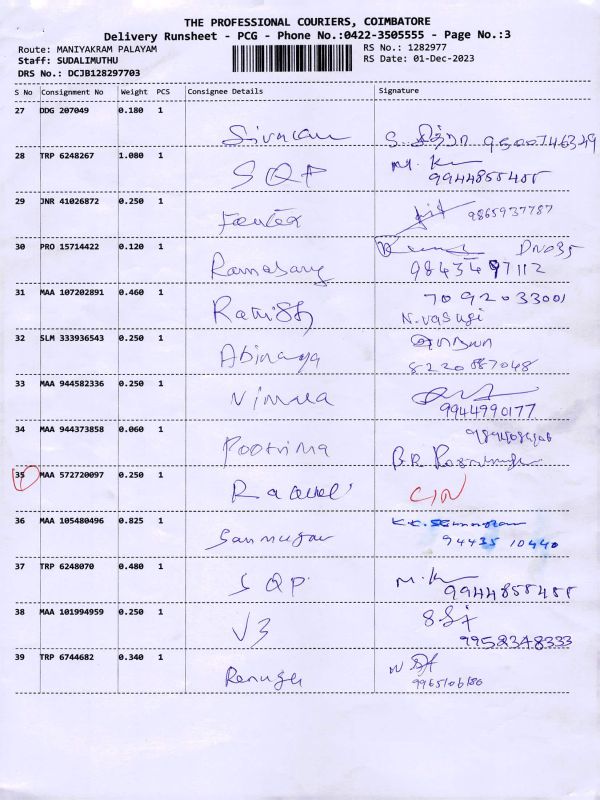 THE PROFESSIONAL COURIERS, COIMBATORE
Delivery Runsheet - PCG - Phone No.:0422-3505555 - Page No.:3
Route: MANIYAKRAM PALAYAM RS No.: 1282977
Staff: SUDALIMUTHU RS Date: 01-Dec-2023
DRS No.: DCJB128297703
S No Consignment No Weight PCS Consignee Details Signature
27 DDG 207049 0.180 1
S. சித்ரா 9500746349
28 TRP 6248267 1.080 1 M. K
SQP 9944855455
29 JNR 41026872 0.250 1
9865937787
30 PRO 15714422 0.120 1 DNO35
Ramasamy 9843497112
31 MAA 107202891 0.460 1 7092033001
Ratish N.Vasugi
32 SLM 333936543 0.250 1
Abinaya 8220887048
33 MAA 944582336 0.250 1
Vimala 9944990177
34 MAA 944373858 0.060 1
Poornima B.R.
35 MAA 572720097 0.250 1
36 MAA 105480496 0.825 1
Sanmugam 94435 10440
37 TRP 6248070 0.480 1
SQP. M.K 9944855455
38 MAA 101994959 0.250 1
V3 9952348333
39 TRP 6744682 0.340 1
Renuga 9965106180